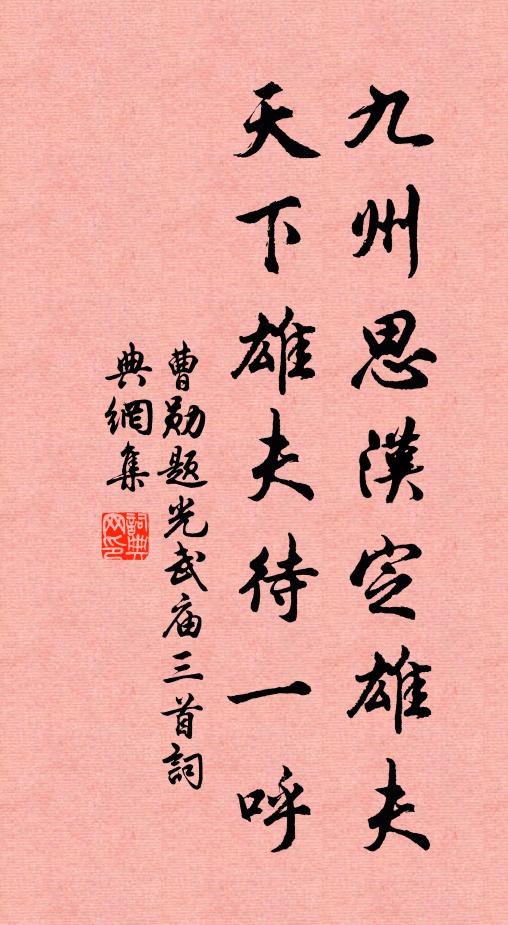 九州思漢定雄夫
天下雄夫待一呼
曹勛題光武庙三首詞
典網集
詞典網印